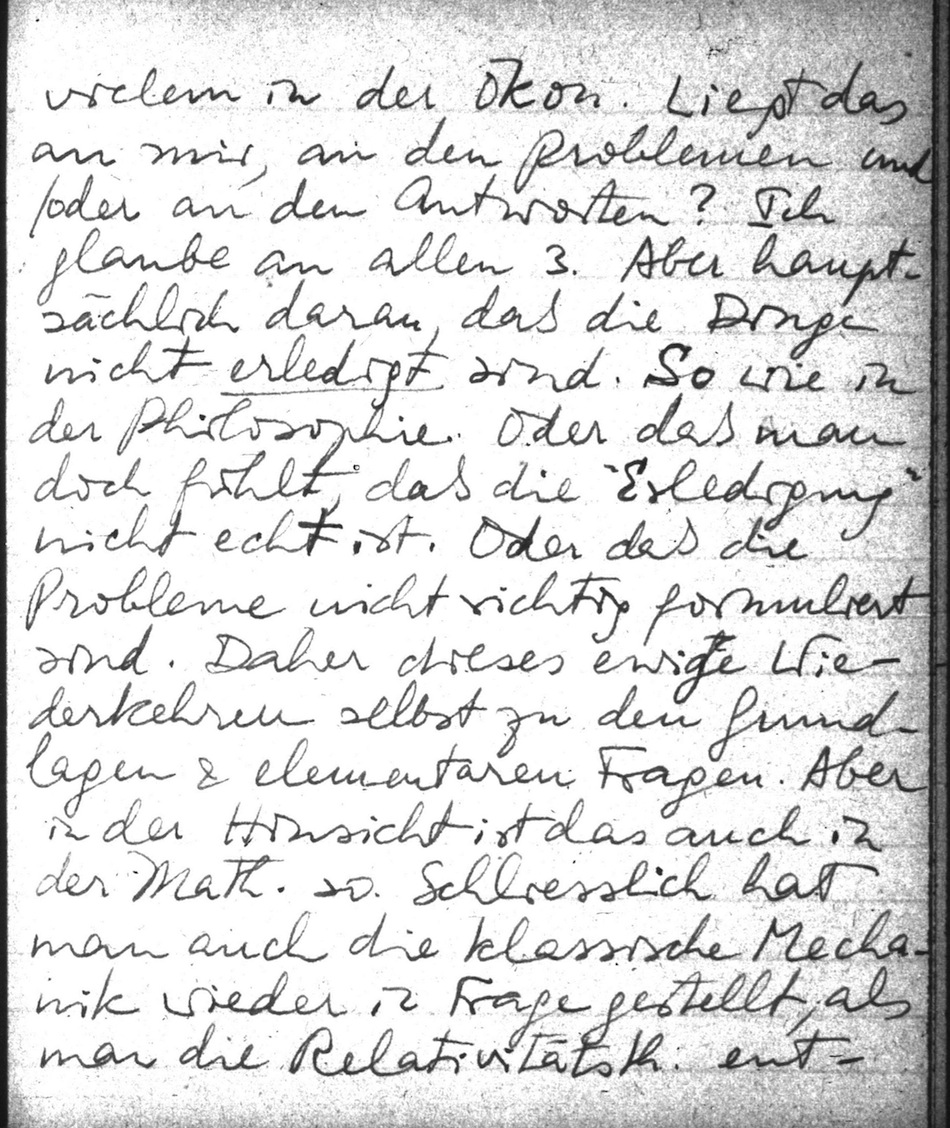 vielem in der Ökon. Liegt das
an mir, an den Problemen und
/oder an den Antworten? Ich
glaube an allen 3. Aber haupt-
sächlich daran, daß die Dinge
nicht erledigt sind. So wie in
der Philosophie. Oder daß man
doch fühlt, daß die "Erledigung"
nicht echt ist. Oder daß die
Probleme nicht richtig formuliert
sind. Daher dieses ewige Wie-
derkehren selbst zu den Grund-
lagen & elementaren Fragen. Aber
in der Hinsicht ist das auch in
der Math. so. Schliesslich hat
man auch die klassische Mecha-
nik wieder in Frage gestellt, als
man die Relativitätsth. ent-